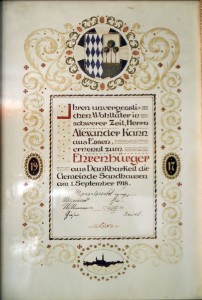 Ihren unvergessli=
chen Wohltäter in
schwerer Zeit, Herrn
Alexander Kann
aus Essen,
ernennt zum
Ehrenbürger
aus Dankbarkeit die
Gemeinde Sandhausen
am 1. September 1918.
19
17